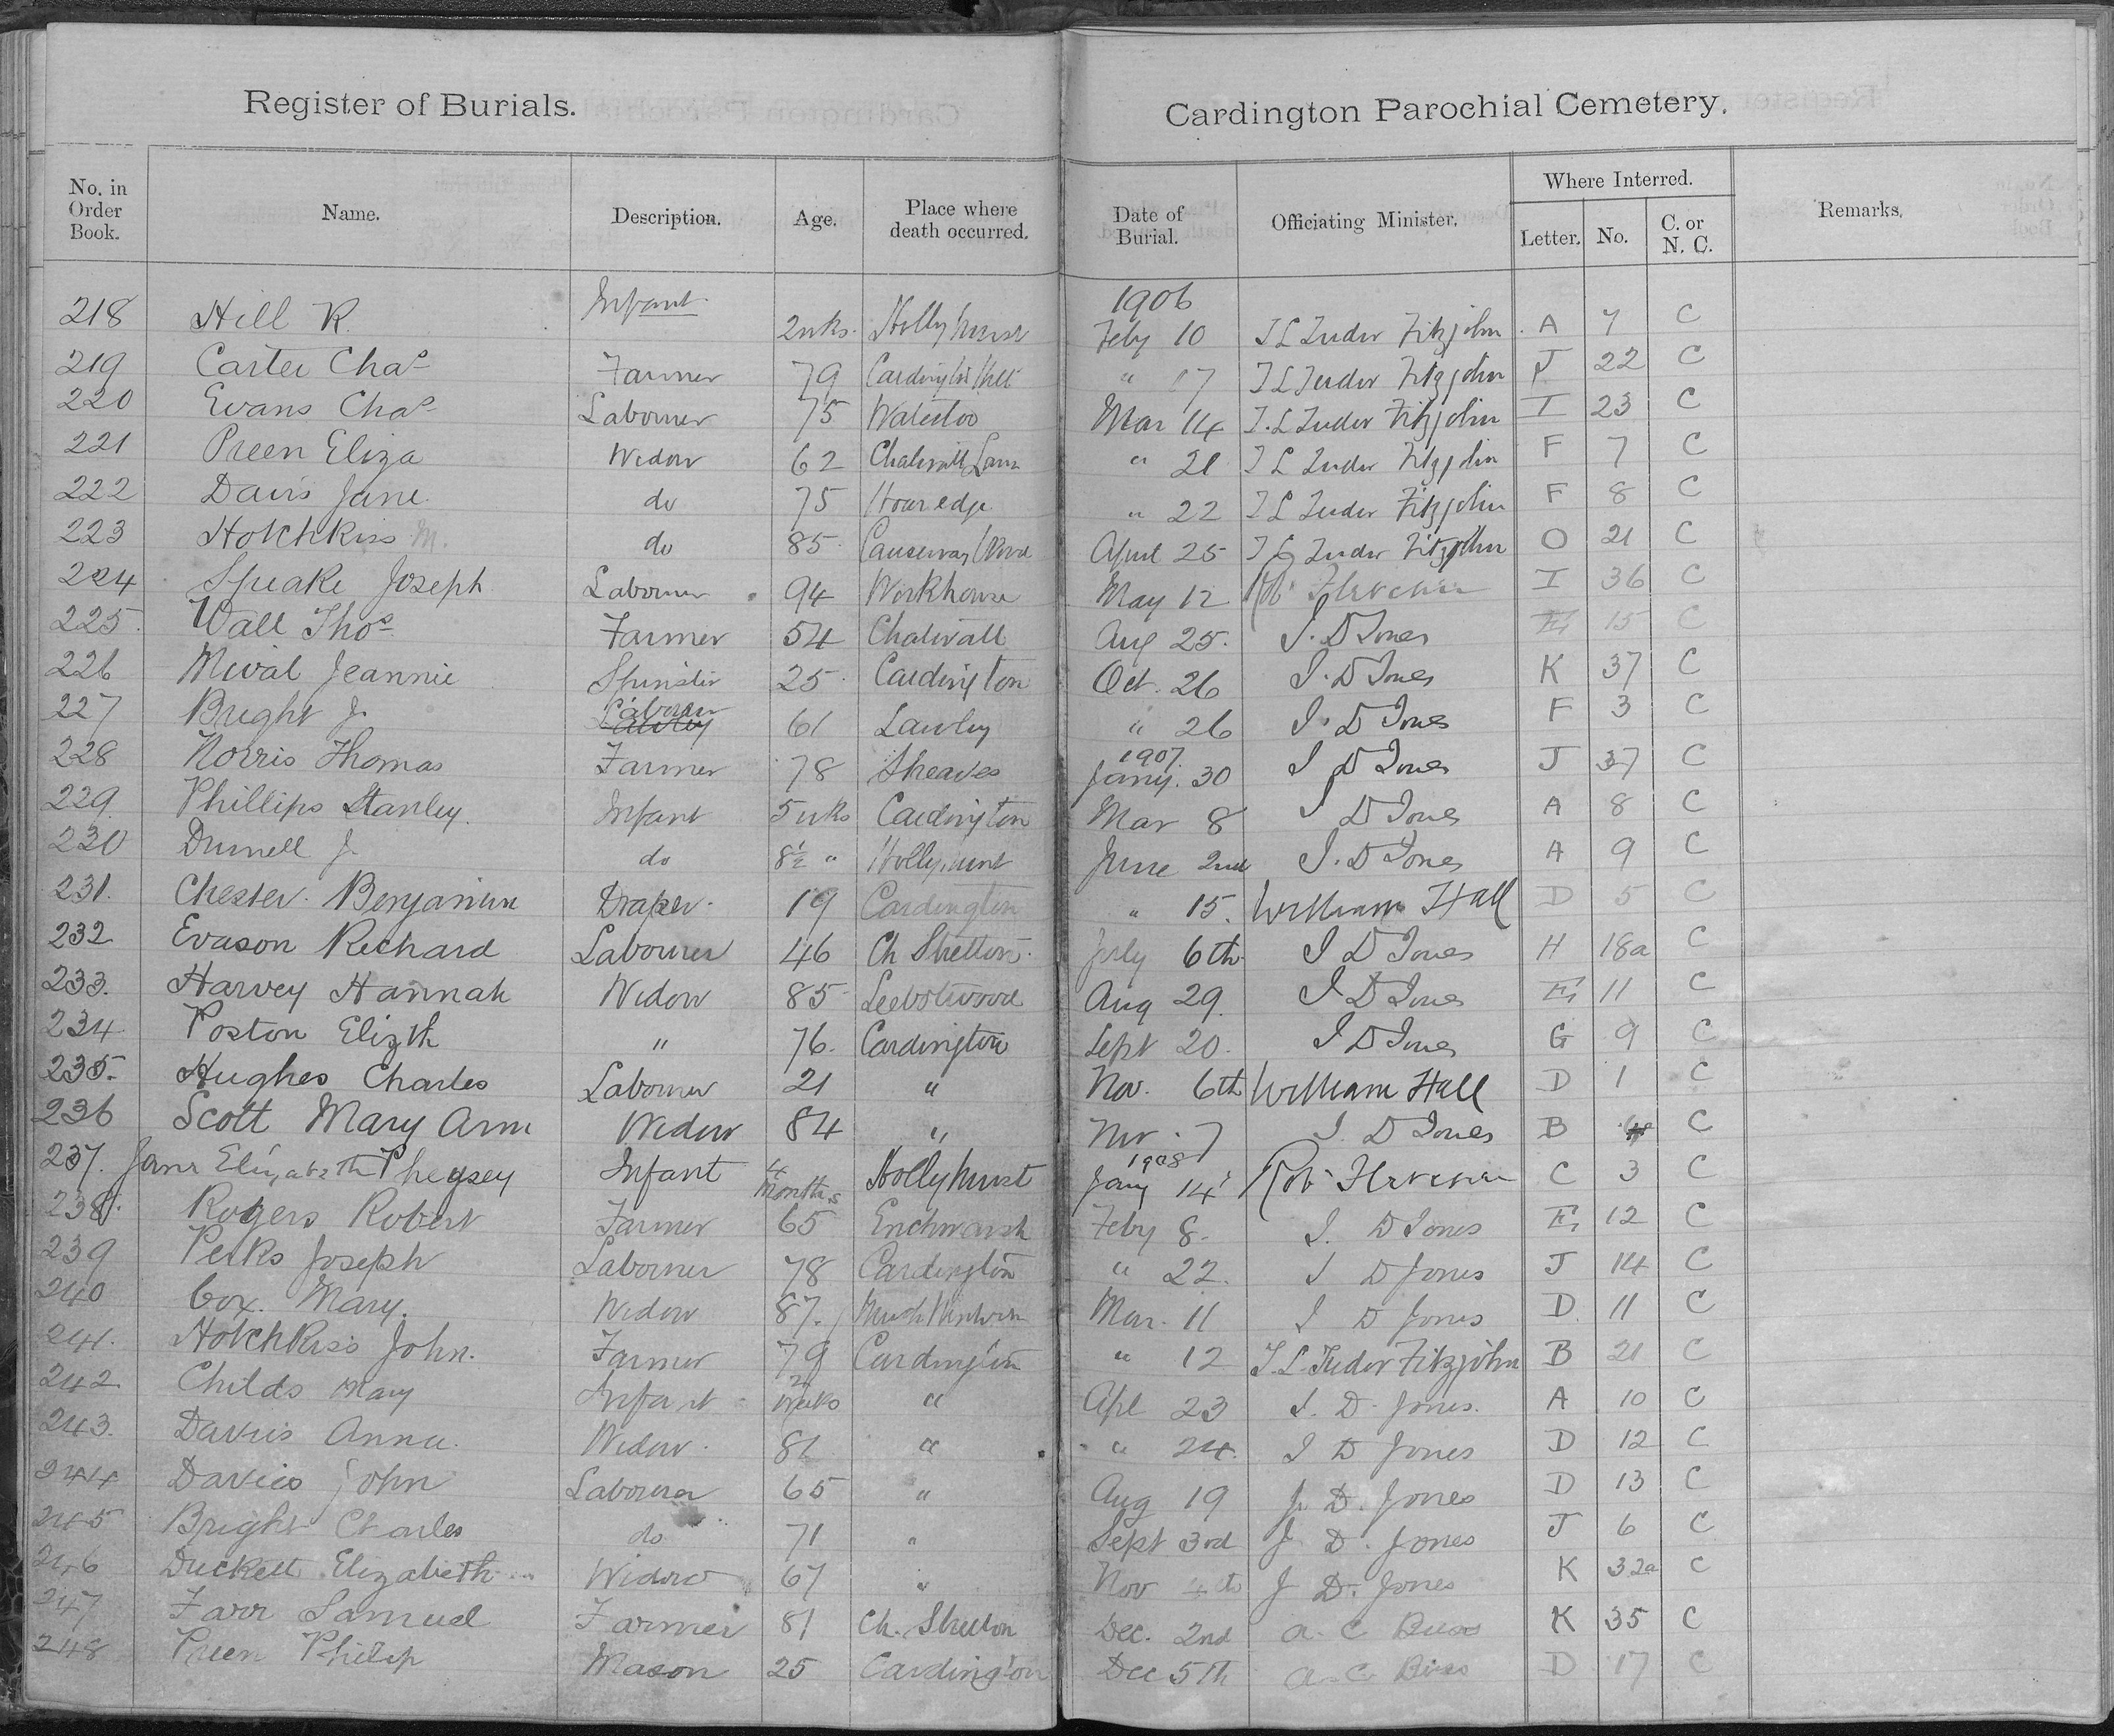 Register of Burials.
Cardington Parochial Cemetery.
No. in Order Book. Name. Description. Age. Place where death occurred. Date of Burial. Officiating Minister. Where Interred. Letter. No. C. or N. C. Remarks.
1906
218 Hill R. Infant 2wks. Hollyhurst Feby 10 T L Tudor Fitzjohn A 7 C
219 Carter Chas Farmer 79 Cardington Hill " 17 T L Tudor Fitzjohn J 22 C
220 Evans Chas Labourer 75 Waterloo Mar 14 T. L Tudor Fitzjohn I 23 C
221 Preen Eliza Widow 62 Chatwall Lawn " 21 T L Tudor Fitzjohn F 7 C
222 Davis Jane do 75 Hoar edge " 22 T L Tudor Fitzjohn F 8 C
223 Hotchkiss M. do 85 Causeway Wood April 25 T L Tudor Fitzjohn O 21 C
224 Speake Joseph Labourer 94 Workhouse May 12 Rob Fletcher I 36 C
225 Wall Thos Farmer 54 Chatwall Aug 25. J. D Jones E 15 C
226 Mival Jeannie Spinster 25 Cardington Oct. 26 J. D Jones K 37 C
227 Bright J. Labourer 61 Lawley " 26 J. D Jones F 3 C
1907.
228 Norris Thomas Farmer 78 Sheaves Jany. 30 J D Jones J 37 C
229. Phillips Stanley. Infant 5 wks Cardington Mar 8 J D Jones A 8 C
230 J. do 8½ " Hollyhurst June 2nd J. D Jones A 9 C
231. Chester Benjamin Draper 19 Cardington " 15. William Hall D 5 C
232 Evason Richard Labourer 46 Ch Stretton July 6th J D Jones H 18a C
233. Harvey Hannah Widow 85 Leebotwood Aug 29. J D Jones E 11 C
234 Poston Elizth " 76. Cardington Sept 20. J D Jones G 9 C
235. Hughes Charles Labourer 21 " Nov. 6th William Hall D 1 C
236 Scott Mary Ann Widow 84 " Nov. 7 J. D Jones B C
1908
237. Jane Elizabeth Phegsey Infant 4 Months Hollyhurst Jany 14 Rob Fletcher C 3 C
238. Rogers Robert Farmer 65 Enchmarsh Feby 8. J. D Jones E 12 C
239 Perks Joseph Labourer 78 Cardington " 22. J D Jones J 14 C
240 Cox. Mary. Widow 87. Much Wenlock Mar. 11 J D Jones D. 11 C
241. Hotchkiss John. Farmer 79 Cardington " 12 T. L. Tudor Fitzjohn B 21 C
242 Childs Mary Infant 2 Weeks " Apl 23 J. D. Jones. A 10 C
243. Davies Anna. Widow " " 24. J D Jones D 12 C
244 Davies John Labourer 65 " Aug 19 J. D. Jones D 13 C
245 Bright Charles do 71 " Sept 3rd J. D. Jones J 6 C
246 Duckett Elizabeth Widow 67 " Nov 4th J D. Jones K 32a C
247 Farr Samuel Farmer 81 Ch. Stretton Dec. 2nd A. C K 35 C
248 Preen Philip Mason 25 Cardington Dec 5th A. C D 17 C